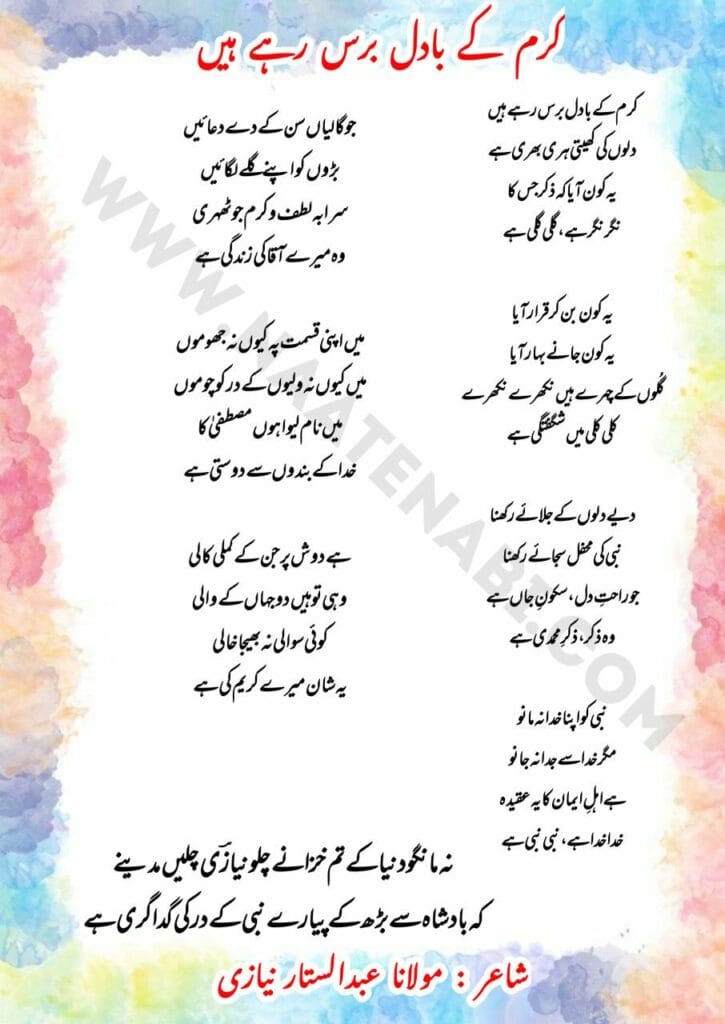 کرم کے بادل برس رہے ہیں
کرم کے بادل برس رہے ہیں
دلوں کی کھیتی ہری بھری ہے
یہ کون آیا کہ ذکر جس کا
نگر نگر ہے، گلی گلی ہے
یہ کون بن کر قرار آیا
یہ کون جانے بہار آیا
گلوں کے چہرے ہیں نکھرے نکھرے
کلی کلی میں شگفتگی ہے
دیے دلوں کے جلائے رکھنا
نبی کی محفل سجائے رکھنا
جو راحتِ دل، سکونِ جاں ہے
وہ ذکر، ذکرِ محمدی ہے
نبی کو اپنا خدا نہ مانو
مگر خدا سے جدا نہ جانو
ہے اہلِ ایماں کا یہ عقیدہ
خدا خدا ہے، نبی نبی ہے
جو گالیاں سن کے دے دعائیں
بڑوں کو اپنے گلے لگائیں
سرابہ لطف و کرم جو ٹھہری
وہ میرے آقا کی زندگی ہے
میں اپنی قسمت پہ کیوں نہ جھوموں
میں کیوں نہ ولیوں کے در کو چوموں
میں نام لیوا ہوں مصطفیٰ کا
خدا کے بندوں سے دوستی ہے
ہے دوش پر جن کے کملی کالی
وہی تو ہیں دو جہاں کے والی
کوئی سوالی نہ بھیجا خالی
یہ شان میرے کریم کی ہے
نہ مانگو دنیا کے تم خزانے چلو نیازیؔ چلیں مدینے
کہ بادشاہ سے بڑھ کے پیارے نبی کے در کی گداگری ہے
شاعر : مولانا عبدالستار نیازی
WWW.NAATENABI.COM